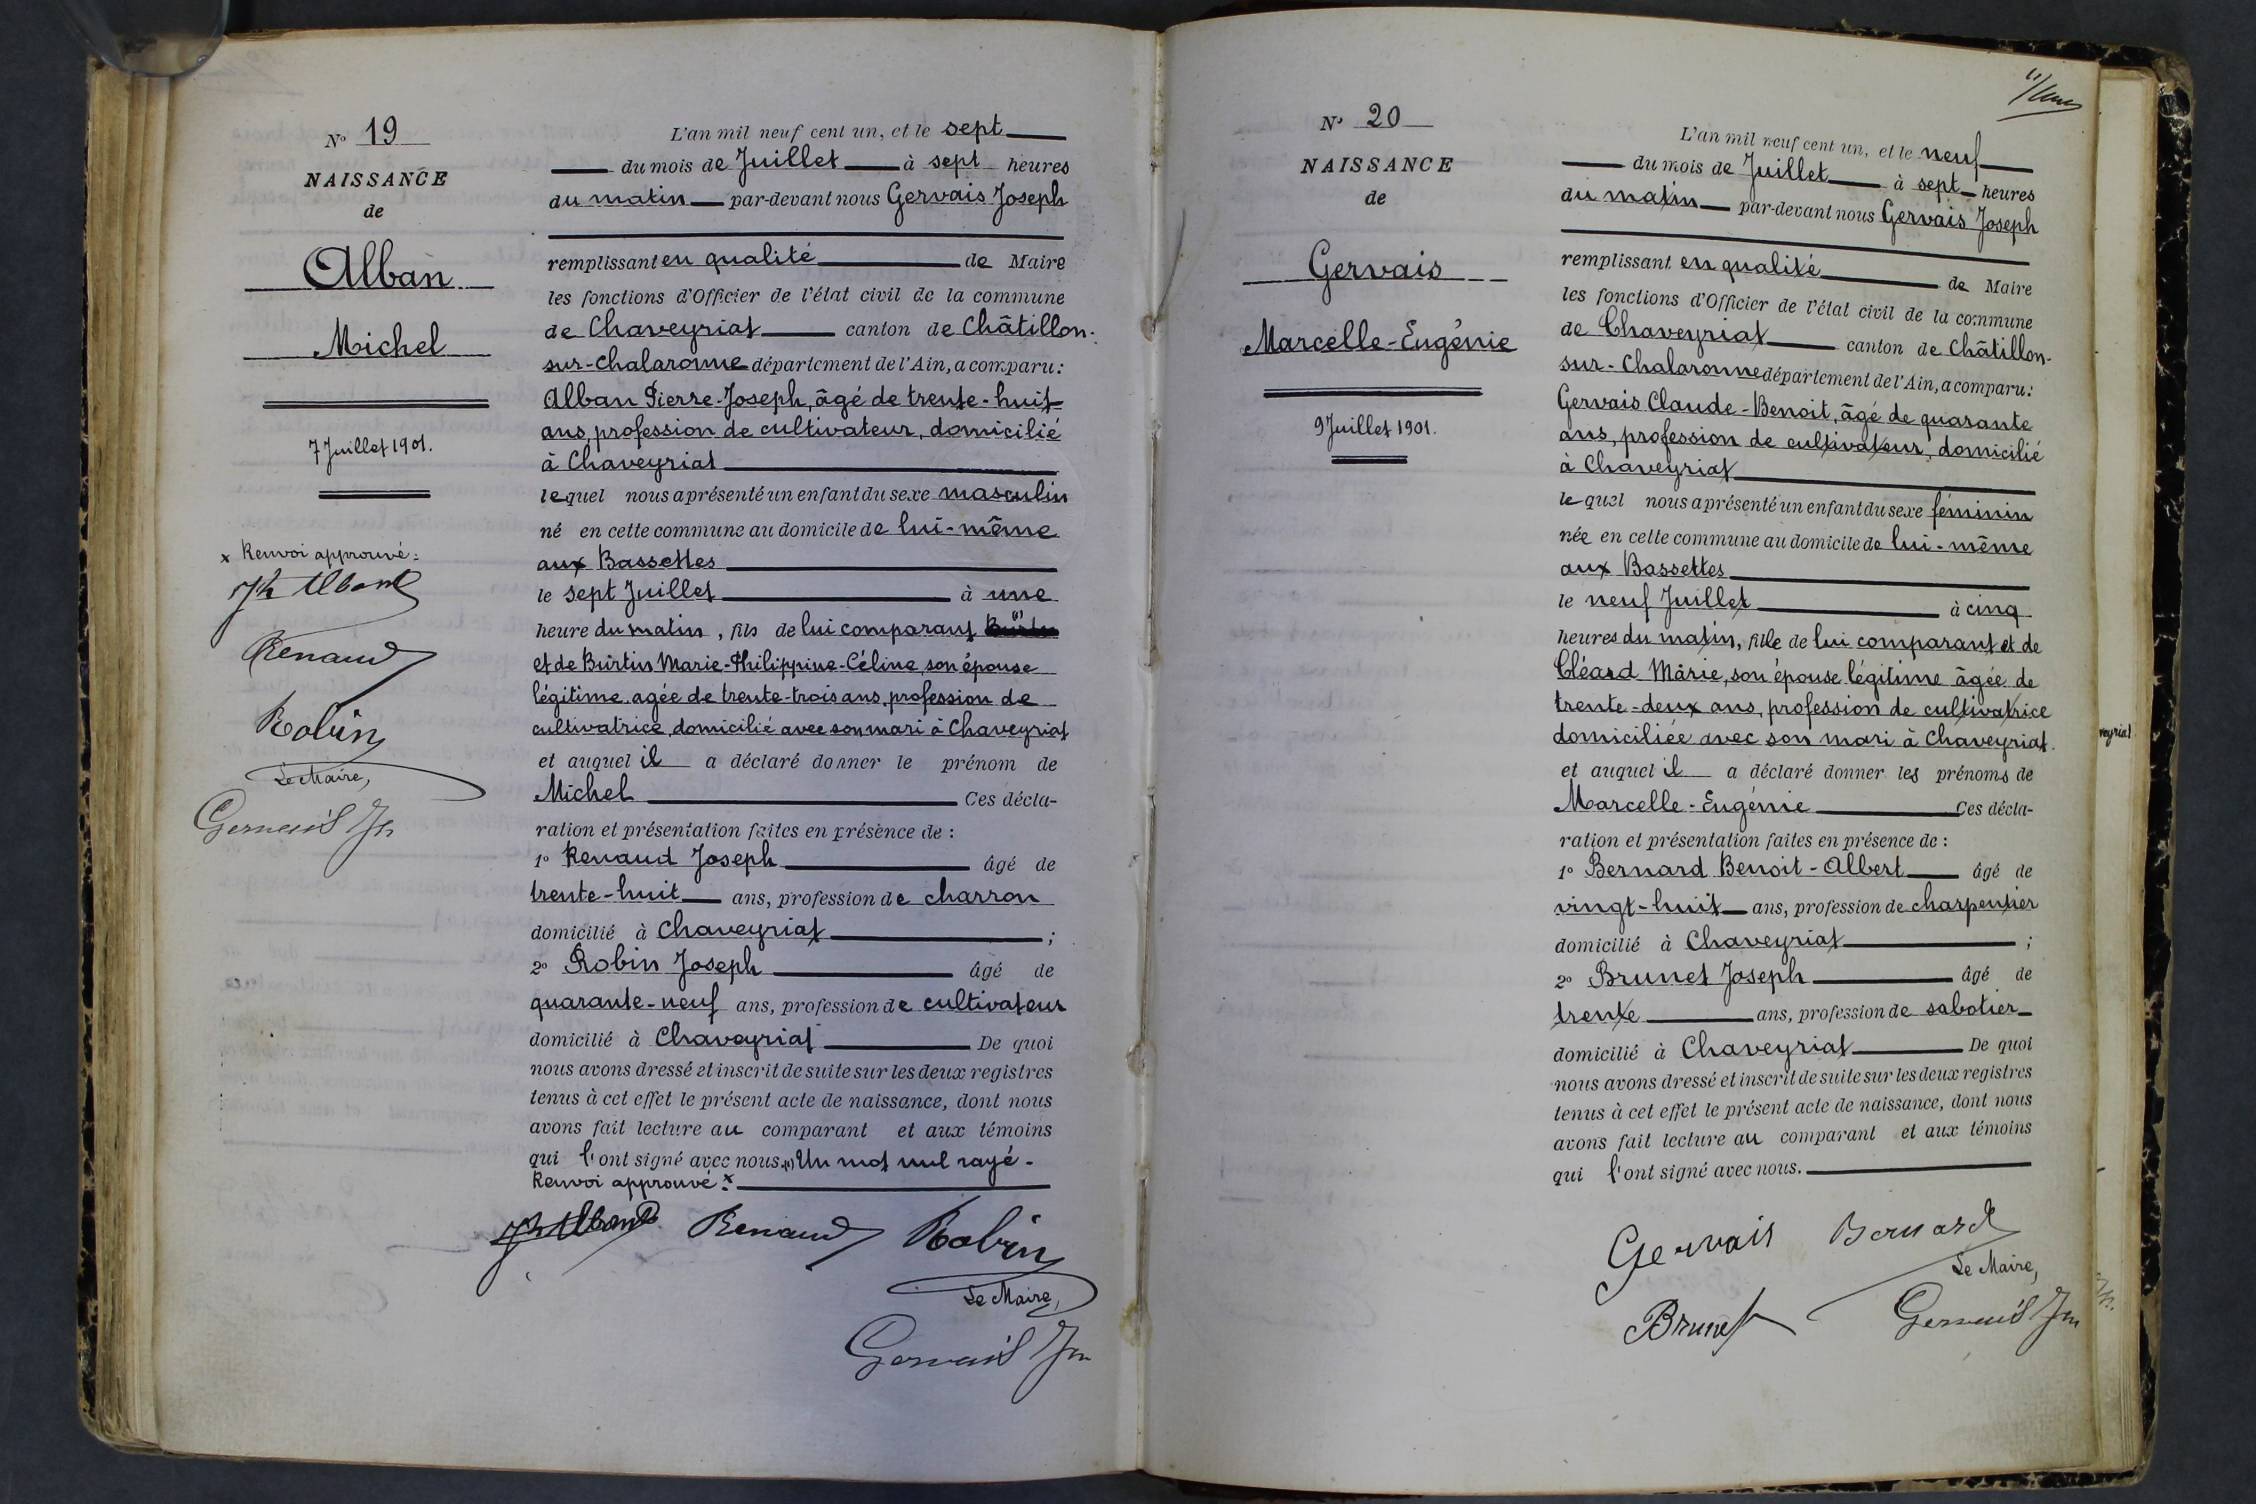 N° 19
NAISSANCE
de
Alban
Michel
7 Juillet 1901.
x Renvoi approuvé:
Jh Alban
Renaud
Robin
Le Maire,
Gervais Jh
L'an mil neuf cent un, et le sept
du mois de Juillet à sept heures
du matin par-devant nous Gervais Joseph
remplissant en qualité de Maire
les fonctions d'Officier de l'état civil de la commune
de Chaveyriat canton de Châtillon-
sur-Chalaronne département de l'Ain, a comparu:
Alban Pierre-Joseph, âgé de trente-huit
ans, profession de cultivateur, domicilié
à Chaveyriat
lequel nous a présenté un enfant du sexe masculin
né en cette commune au domicile de lui-même
aux Bassettes
le sept Juillet à une
heure du matin, fils de lui comparant (1)
et de Burtin Marie-Philippine-Céline, son épouse
légitime, agée de trente-trois ans, profession de
cultivatrice, domicilié avec son mari à Chaveyriat
et auquel il a déclaré donner le prénom de
Michel Ces décla-
ration et présentation faites en présence de :
1° Renaud Joseph âgé de
trente-huit ans, profession de charron
domicilié à Chaveyriat ;
2° Robin Joseph âgé de
quarante-neuf ans, profession de cultivateur
domicilié à Chaveyriat De quoi
nous avons dressé et inscrit de suite sur les deux registres
tenus à cet effet le présent acte de naissance, dont nous
avons fait lecture au comparant et aux témoins
qui l'ont signé avec nous. (1) Un mot nul rayé.
Renvoi approuvé: x
Jh Alban Renaud Robin
Le Maire,
Gervais Jh
N° 20
NAISSANCE
de
Gervais
Marcelle-Eugénie
9 Juillet 1901.
L'an mil neuf cent un, et le neuf
du mois de Juillet à sept heures
du matin par-devant nous Gervais Joseph
remplissant en qualité de Maire
les fonctions d'Officier de l'état civil de la commune
de Chaveyriat canton de Châtillon-
sur-Chalaronne département de l'Ain, a comparu:
Gervais Claude-Benoit, âgé de quarante
ans, profession de cultivateur, domicilié
à Chaveyriat
lequel nous a présenté un enfant du sexe féminin
née en cette commune au domicile de lui-même
aux Bassettes
le neuf Juillet à cinq
heures du matin, fille de lui comparant et de
Cléard Marie, son épouse légitime âgée de
trente-deux ans, profession de cultivatrice
domiciliée avec son mari à Chaveyriat.
et auquel il a déclaré donner les prénoms de
Marcelle-Eugénie Ces décla-
ration et présentation faites en présence de :
1° Bernard Benoit-Albert âgé de
vingt-huit ans, profession de charpentier
domicilié à Chaveyriat ;
2° Brunet Joseph âgé de
trente ans, profession de sabotier
domicilié à Chaveyriat De quoi
nous avons dressé et inscrit de suite sur les deux registres
tenus à cet effet le présent acte de naissance, dont nous
avons fait lecture au comparant et aux témoins
qui l'ont signé avec nous.
Gervais Bernard
Le Maire,
Brunet Gervais Jh
veyriat